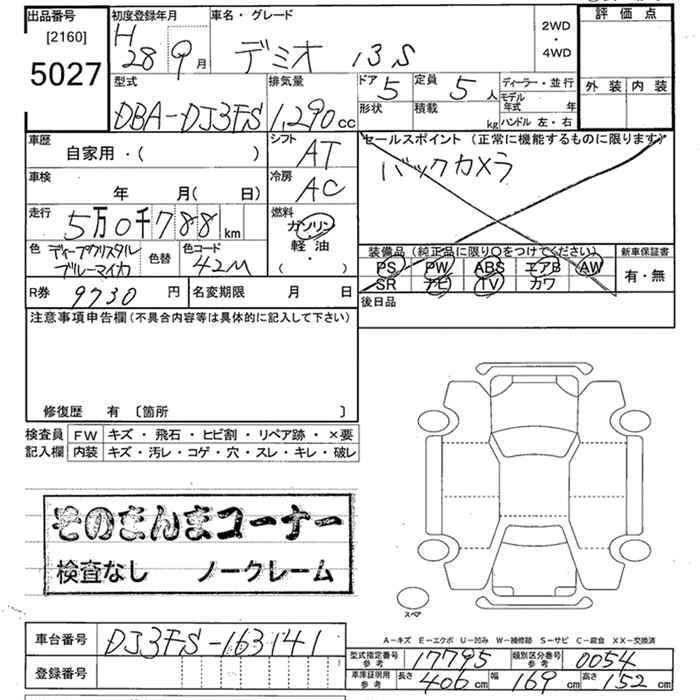 出品番号
[2160]
5027
初度登録年月
H 28 9 月
車名・グレード
デミオ 13S
2WD
・
4WD
評価点
外装 内装
型式
DBA-DJ3FS
排気量
1,290 cc
ドア 5
定員 5 人
形状
積載 kg
ディーラー・並行
モデル年式 年
ハンドル 左・右
車歴
自家用・( )
シフト
AT
セールスポイント (正常に機能するものに限ります)
バックカメラ
車検
年 月( 日)
冷房
AC
走行
5万0千788 km
燃料
ガソリン
・
軽油
・
( )
色 ディープクリスタルブルーマイカ
色替
色コード
42M
装備品 (純正品に限り〇をつけてください)
PS PW ABS エアB AW
SR ナビ TV カワ
新車保証書
有・無
R券 9730 円
名変期限 月 日
後日品
注意事項申告欄 (不具合内容等は具体的に記入して下さい)
修復歴 有 〔箇所 〕
検査員 FW キズ・飛石・ヒビ割・リペア跡・×要
記入欄 内装 キズ・汚レ・コゲ・穴・スレ・キレ・破レ
そのまんまコーナー
検査なし ノークレーム
スペア
A-キズ E-エクボ U-凹み W-補修跡 S-サビ C-腐食 XX-交換済
車台番号 DJ3FS-163141
登録番号
型式指定番号 参考 17795
類別区分番号 参考 0054
車庫証明用 参考 長さ 406 cm 幅 169 cm 高さ 152 cm